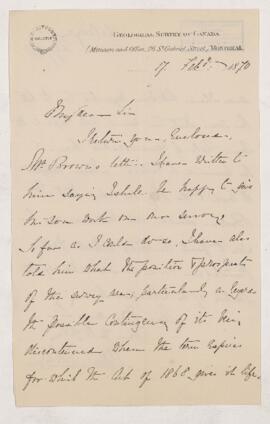 GEOLOGICAL SURVEY OF CANADA
(Museum and Office, 76 St Gabriel Street,) MONTREAL
17 Feby 1870
My dear Sir
I return your Enclosure,
Mr Brown's letter. I have written to
him saying I shall be happy to give
his son work on our survey
so far as I could do so, I have also
told him what the position & prospects
of the survey were, particularly as regards
the possible contingency of its being
discontinued when the term expires
for which the Act of 1868 gives it life